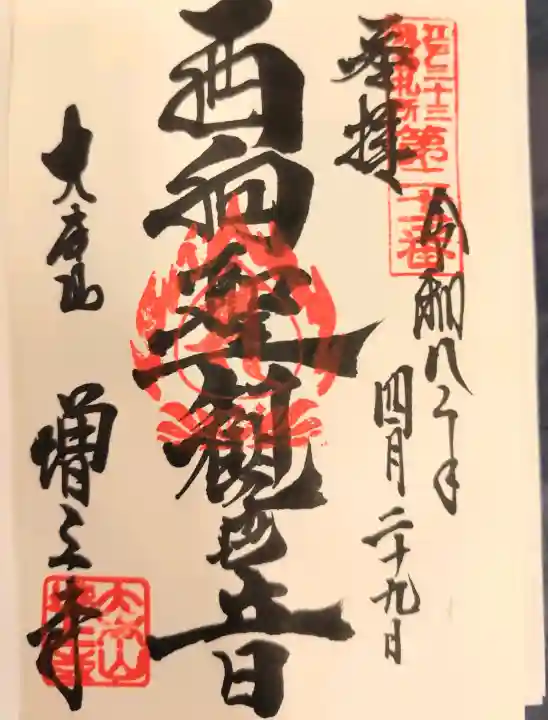 江戸三十三
観音札所
第二十一番
奉拝
令和八年
四月二十九日
西向聖観世音
大本山
増上寺